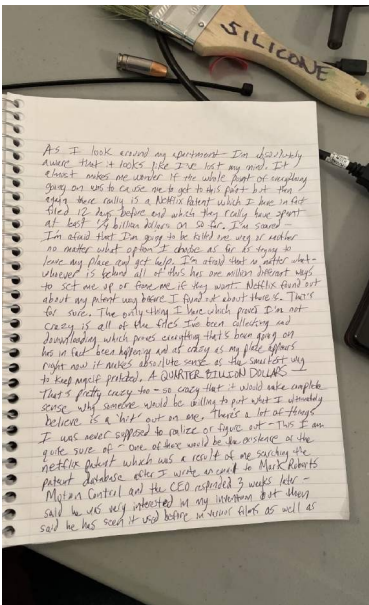 SILICONE
As I look around my apartment I'm absolutely
aware that it looks like I've lost my mind. It
almost makes me wonder if the whole point of everything
going on was to cause me to get to this point but then
again there really is a Netflix Patent which I have in fact
filed 12 days before and which they really have spent
at best 1/4 billion dollars on so far. I'm scared -
I'm afraid that I'm going to be killed one way or another
no matter what option I choose as far as trying to
leave my place and get help. I'm afraid that no matter what -
whoever is behind all of this has one million different ways
to set me up or frame me if they want. Netflix found out
about my patent way before I found out about there's. That's
for sure. The only thing I have which proves I'm not
crazy is all of the files I've been collecting and
downloading which proves everything that's been going on
has in fact been happening and as crazy as my place appears
right now it makes absolute sense as the smartest way
to keep myself protected. A QUARTER BILLION DOLLARS
That's pretty crazy too - so crazy that it would make complete
sense why someone would be willing to put what I ultimately
believe is a 'hit' out on me. There's a lot of things
I was never supposed to realize or figure out - This I am
quite sure of - One of those would be the existence of the
netflix patent which was a result of me searching the
patent database after I wrote an email to Mark Roberts
Motion Control and the CEO responded 3 weeks later -
said he was very interested in my invention but then
said he has seen it used before in various films as well as